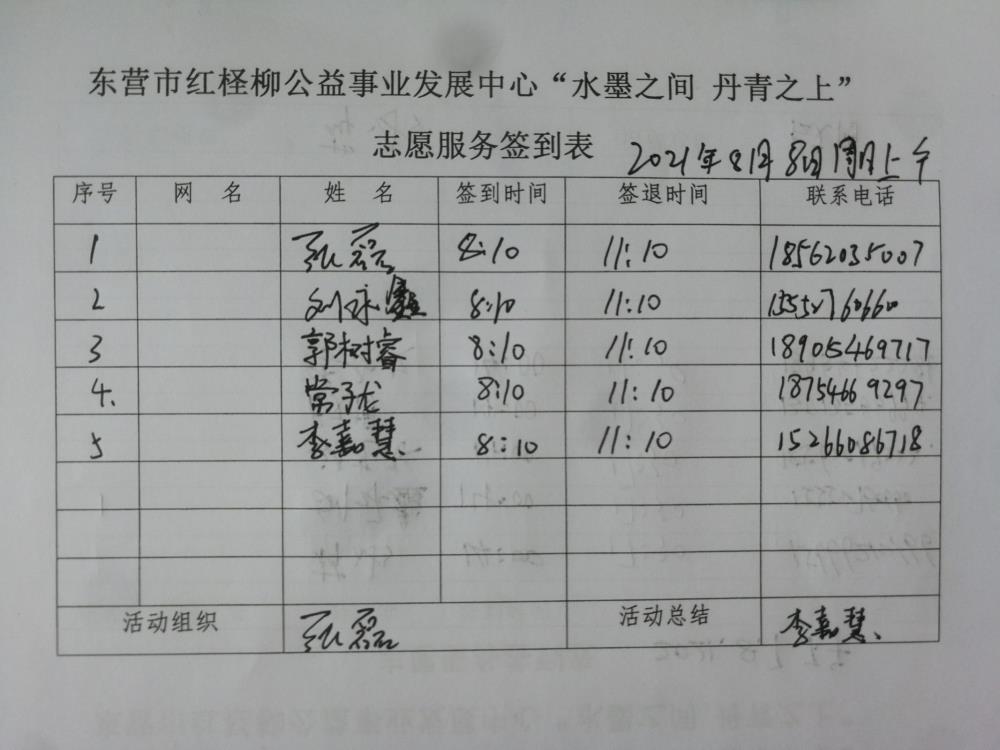 东营市红柽柳公益事业发展中心“水墨之间 丹青之上”
志愿服务签到表 2021年8月8日周日上午
序号 网 名 姓 名 签到时间 签退时间 联系电话
1 张磊 8:10 11:10 18562035007
2 刘 8:10 11:10 15552760660
3 郭树睿 8:10 11:10 18905469717
4. 常子龙 8:10 11:10 18754669297
5 李嘉慧 8:10 11:10 15266086718
活动组织 张磊 活动总结 李嘉慧